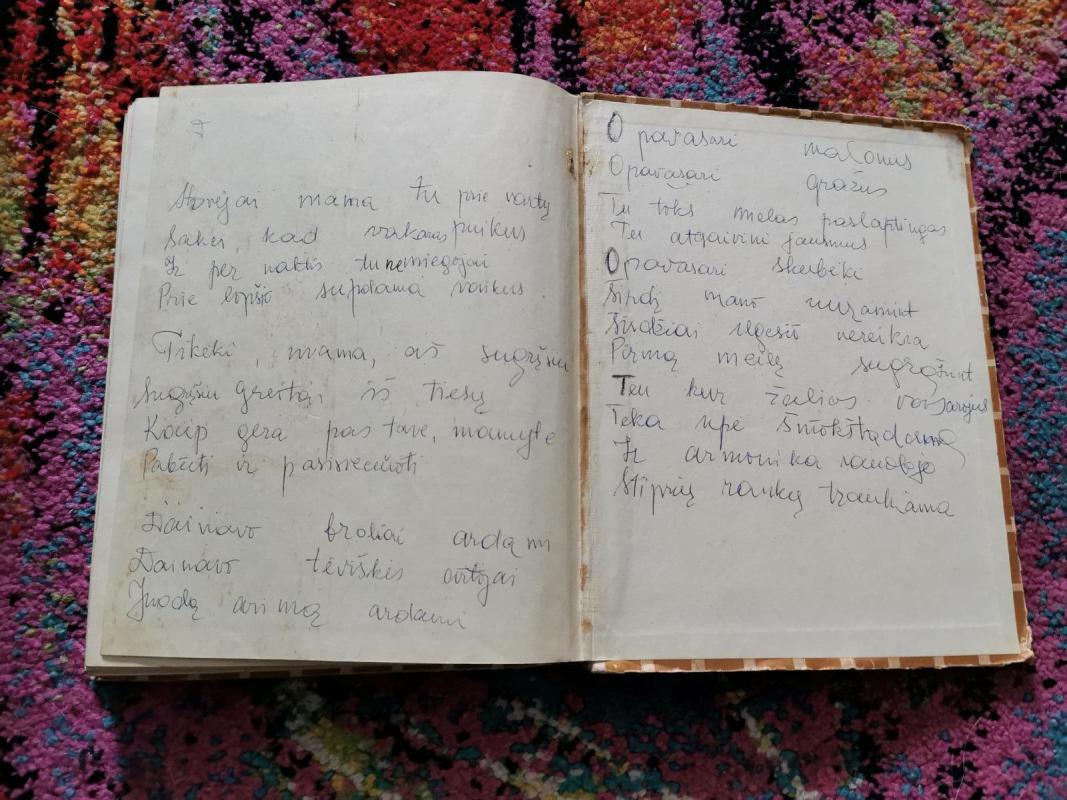 Stovėjai mama tu prie vartų
Sakei, kad vakaras puikus
Ir per naktis tu nemiegojai
Prie lopšio supdama vaikus
Tikėki, mama, aš sugrįšiu
Sugrįšiu greitai iš tiesų
Kaip gera pas tave, mamyte
Pabūti ir pasisvečiuoti
Dainavo broliai ardami
Dainavo tėviškės artojai
Juodą arimą ardami
O pavasari malonus
O pavasari gražus
Tu toks mielas paslaptingas
Tu atgaivini jausmus
O pavasari skubėki
Širdį mano nuramint
Širdžiai ilgesio nereikia
Pirmą meilę sugrąžint
Ten kur žalias vasarojus
Teka upė šniokštądama
Ir armonika raudojo
Stiprių rankų traukiama